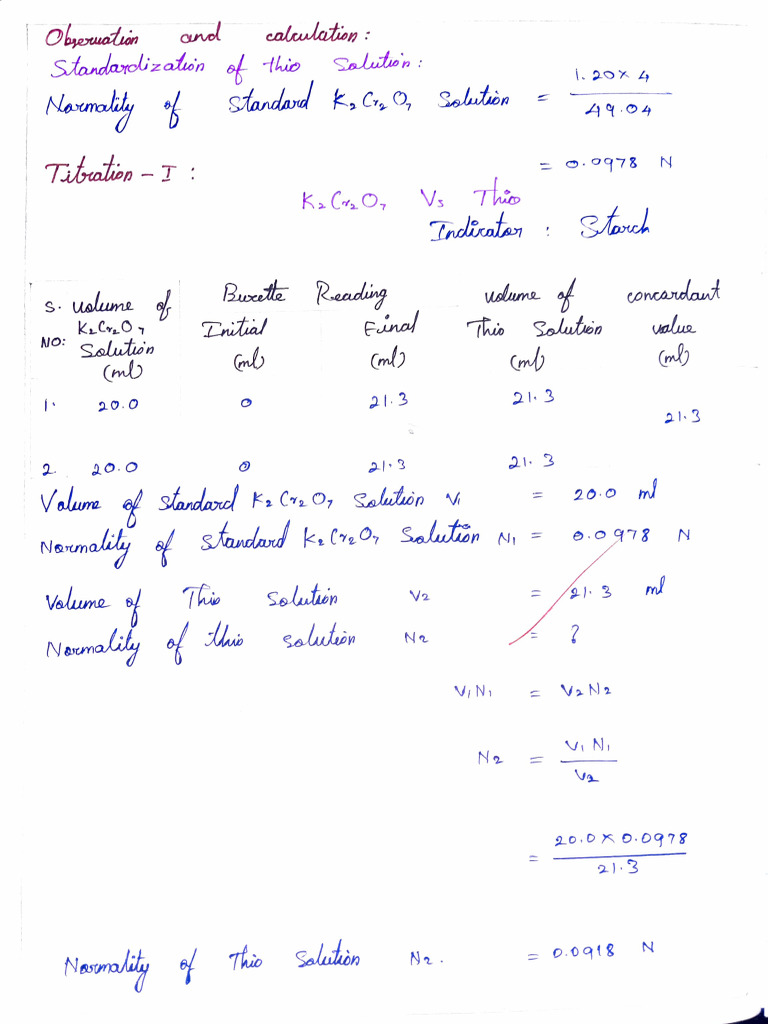 Observation and calculation:
Standardization of thio Solution:
Normality of Standard K₂Cr₂O₇ Solution = 1.20 × 4 / 49.04
= 0.0978 N
Titration - I :
K₂Cr₂O₇ Vs Thio
Indicator : Starch
S. NO: volume of K₂Cr₂O₇ Solution (ml) Burette Reading Initial (ml) Final (ml) volume of Thio Solution (ml) concordant value (ml)
1. 20.0 0 21.3 21.3
21.3
2. 20.0 0 21.3 21.3
Volume of standard K₂Cr₂O₇ Solution V₁ = 20.0 ml
Normality of standard K₂Cr₂O₇ Solution N₁ = 0.0978 N
Volume of Thio Solution V₂ = 21.3 ml
Normality of thio solution N₂ = ?
V₁N₁ = V₂N₂
N₂ = V₁N₁ / V₂
= 20.0 × 0.0978 / 21.3
Normality of Thio Solution N₂. = 0.0918 N